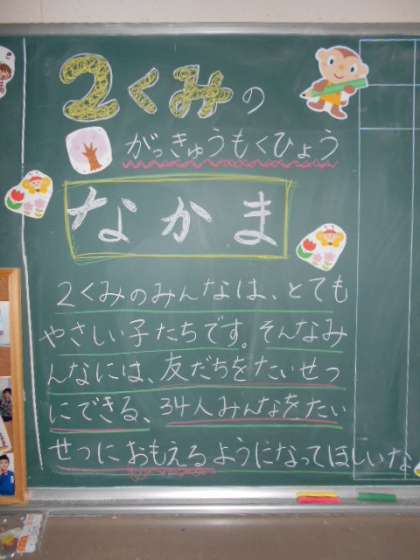 2くみの
がっきゅうもくひょう
なかま
2くみのみんなは、とても
やさしい子たちです。そんなみ
んなには、友だちをたいせつ
にできる、34人みんなをたい
せつにおもえるようになってほしいな